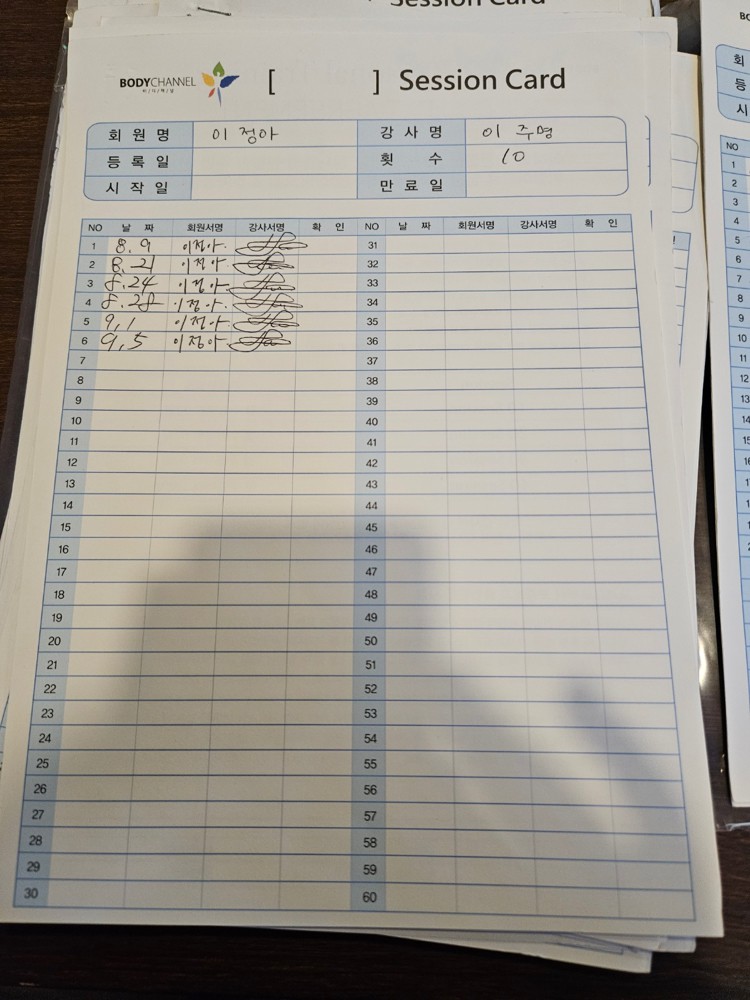 Session Card
BODYCHANNEL
바디채널
[ ] Session Card
회원명 이정아 강사명 이주명
등록일 횟수 10
시작일 만료일
NO 날짜 회원서명 강사서명 확인 NO 날짜 회원서명 강사서명 확인
1 8. 9 이정아. 31
2 8. 21 이정아. 32
3 8. 24 이정아. 33
4 8. 28 이정아. 34
5 9, 1 이정아. 35
6 9, 5 이정아. 36
7 37
8 38
9 39
10 40
11 41
12 42
13 43
14 44
15 45
16 46
17 47
18 48
19 49
20 50
21 51
22 52
23 53
24 54
25 55
26 56
27 57
28 58
29 59
30 60
회
등
시
NO
1
2
3
4
5
6
7
8
9
10
11
12
13
14